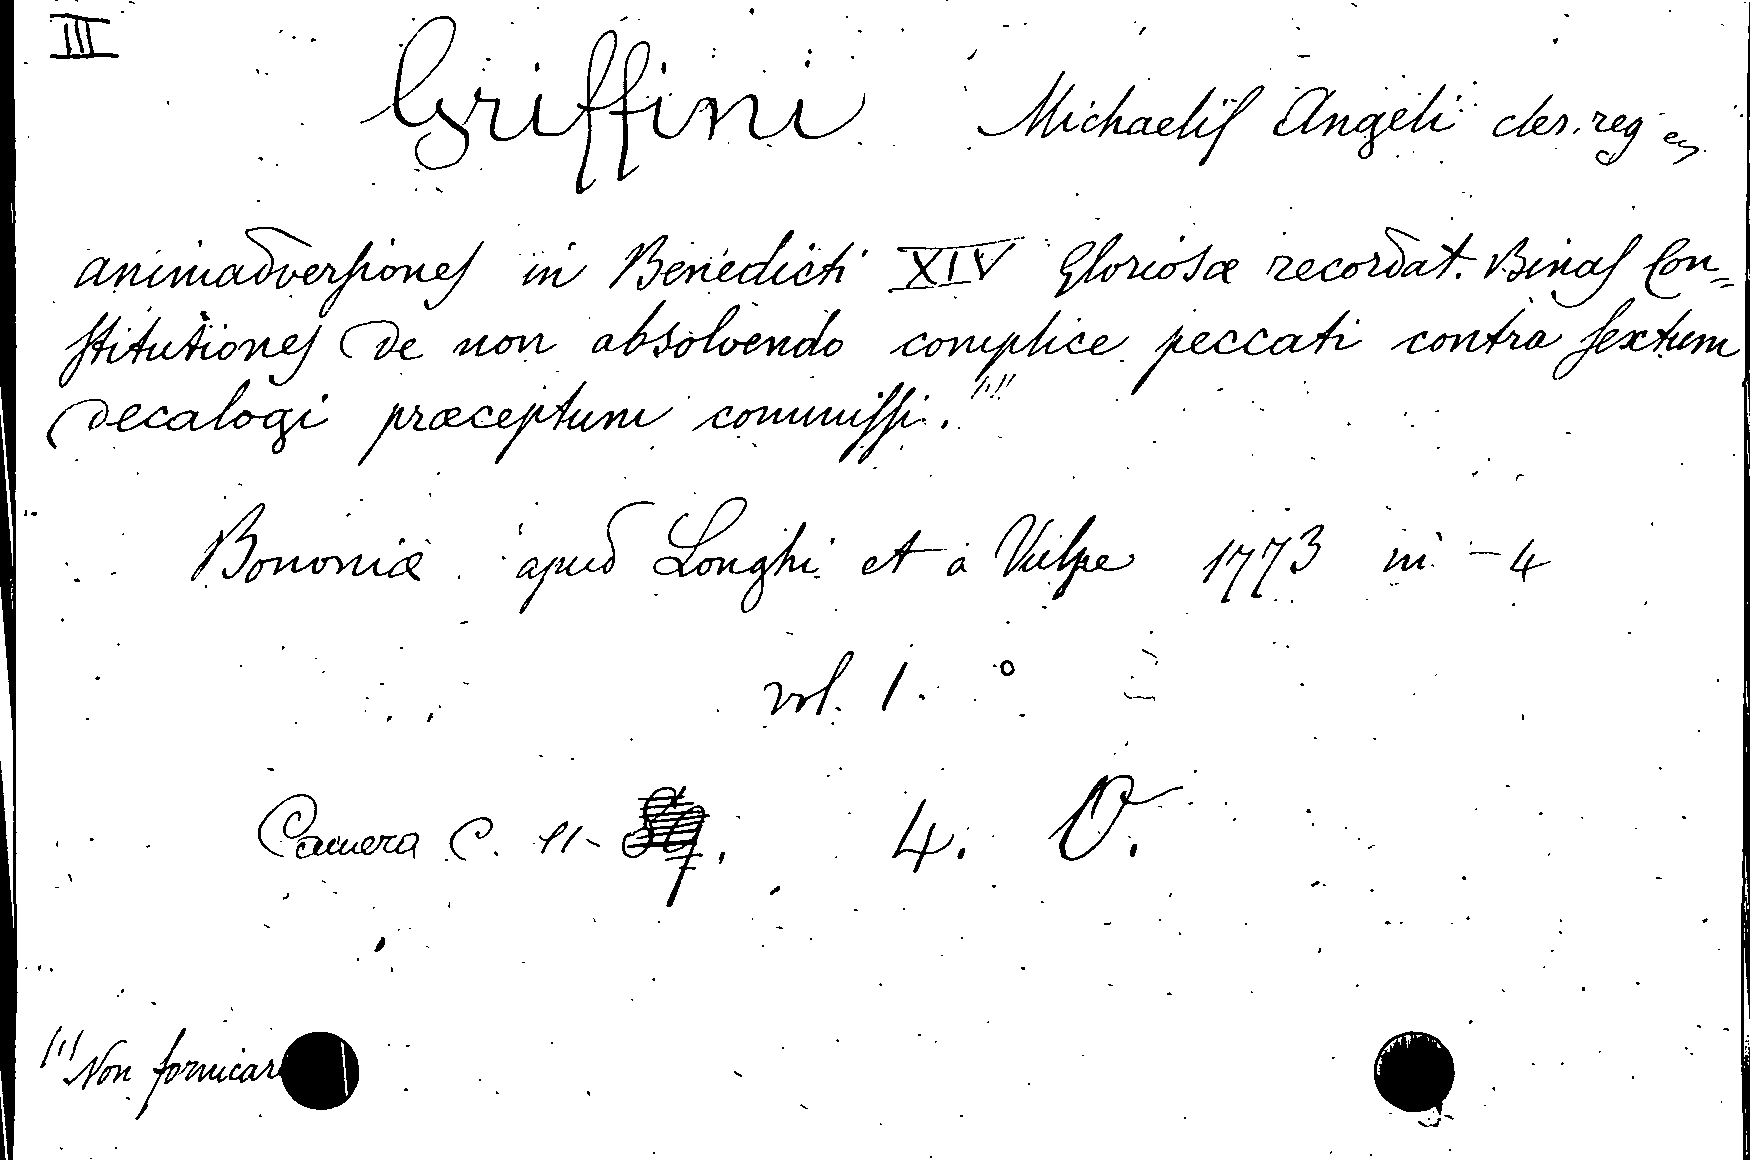 III
Griffini Michaelis Angeli cler. reg.
animadversiones in Benedicti XIV Gloriosæ recordat. Binas Con=
stitutiones de non absolvendo complice peccati contra sextum
decalogi præceptum commissi. (1)
Bononiæ apud Longhi et a Vulpe 1773 in - 4
vol. 1. °
Camera C. 11- 4. O.
(1) Non fornicare